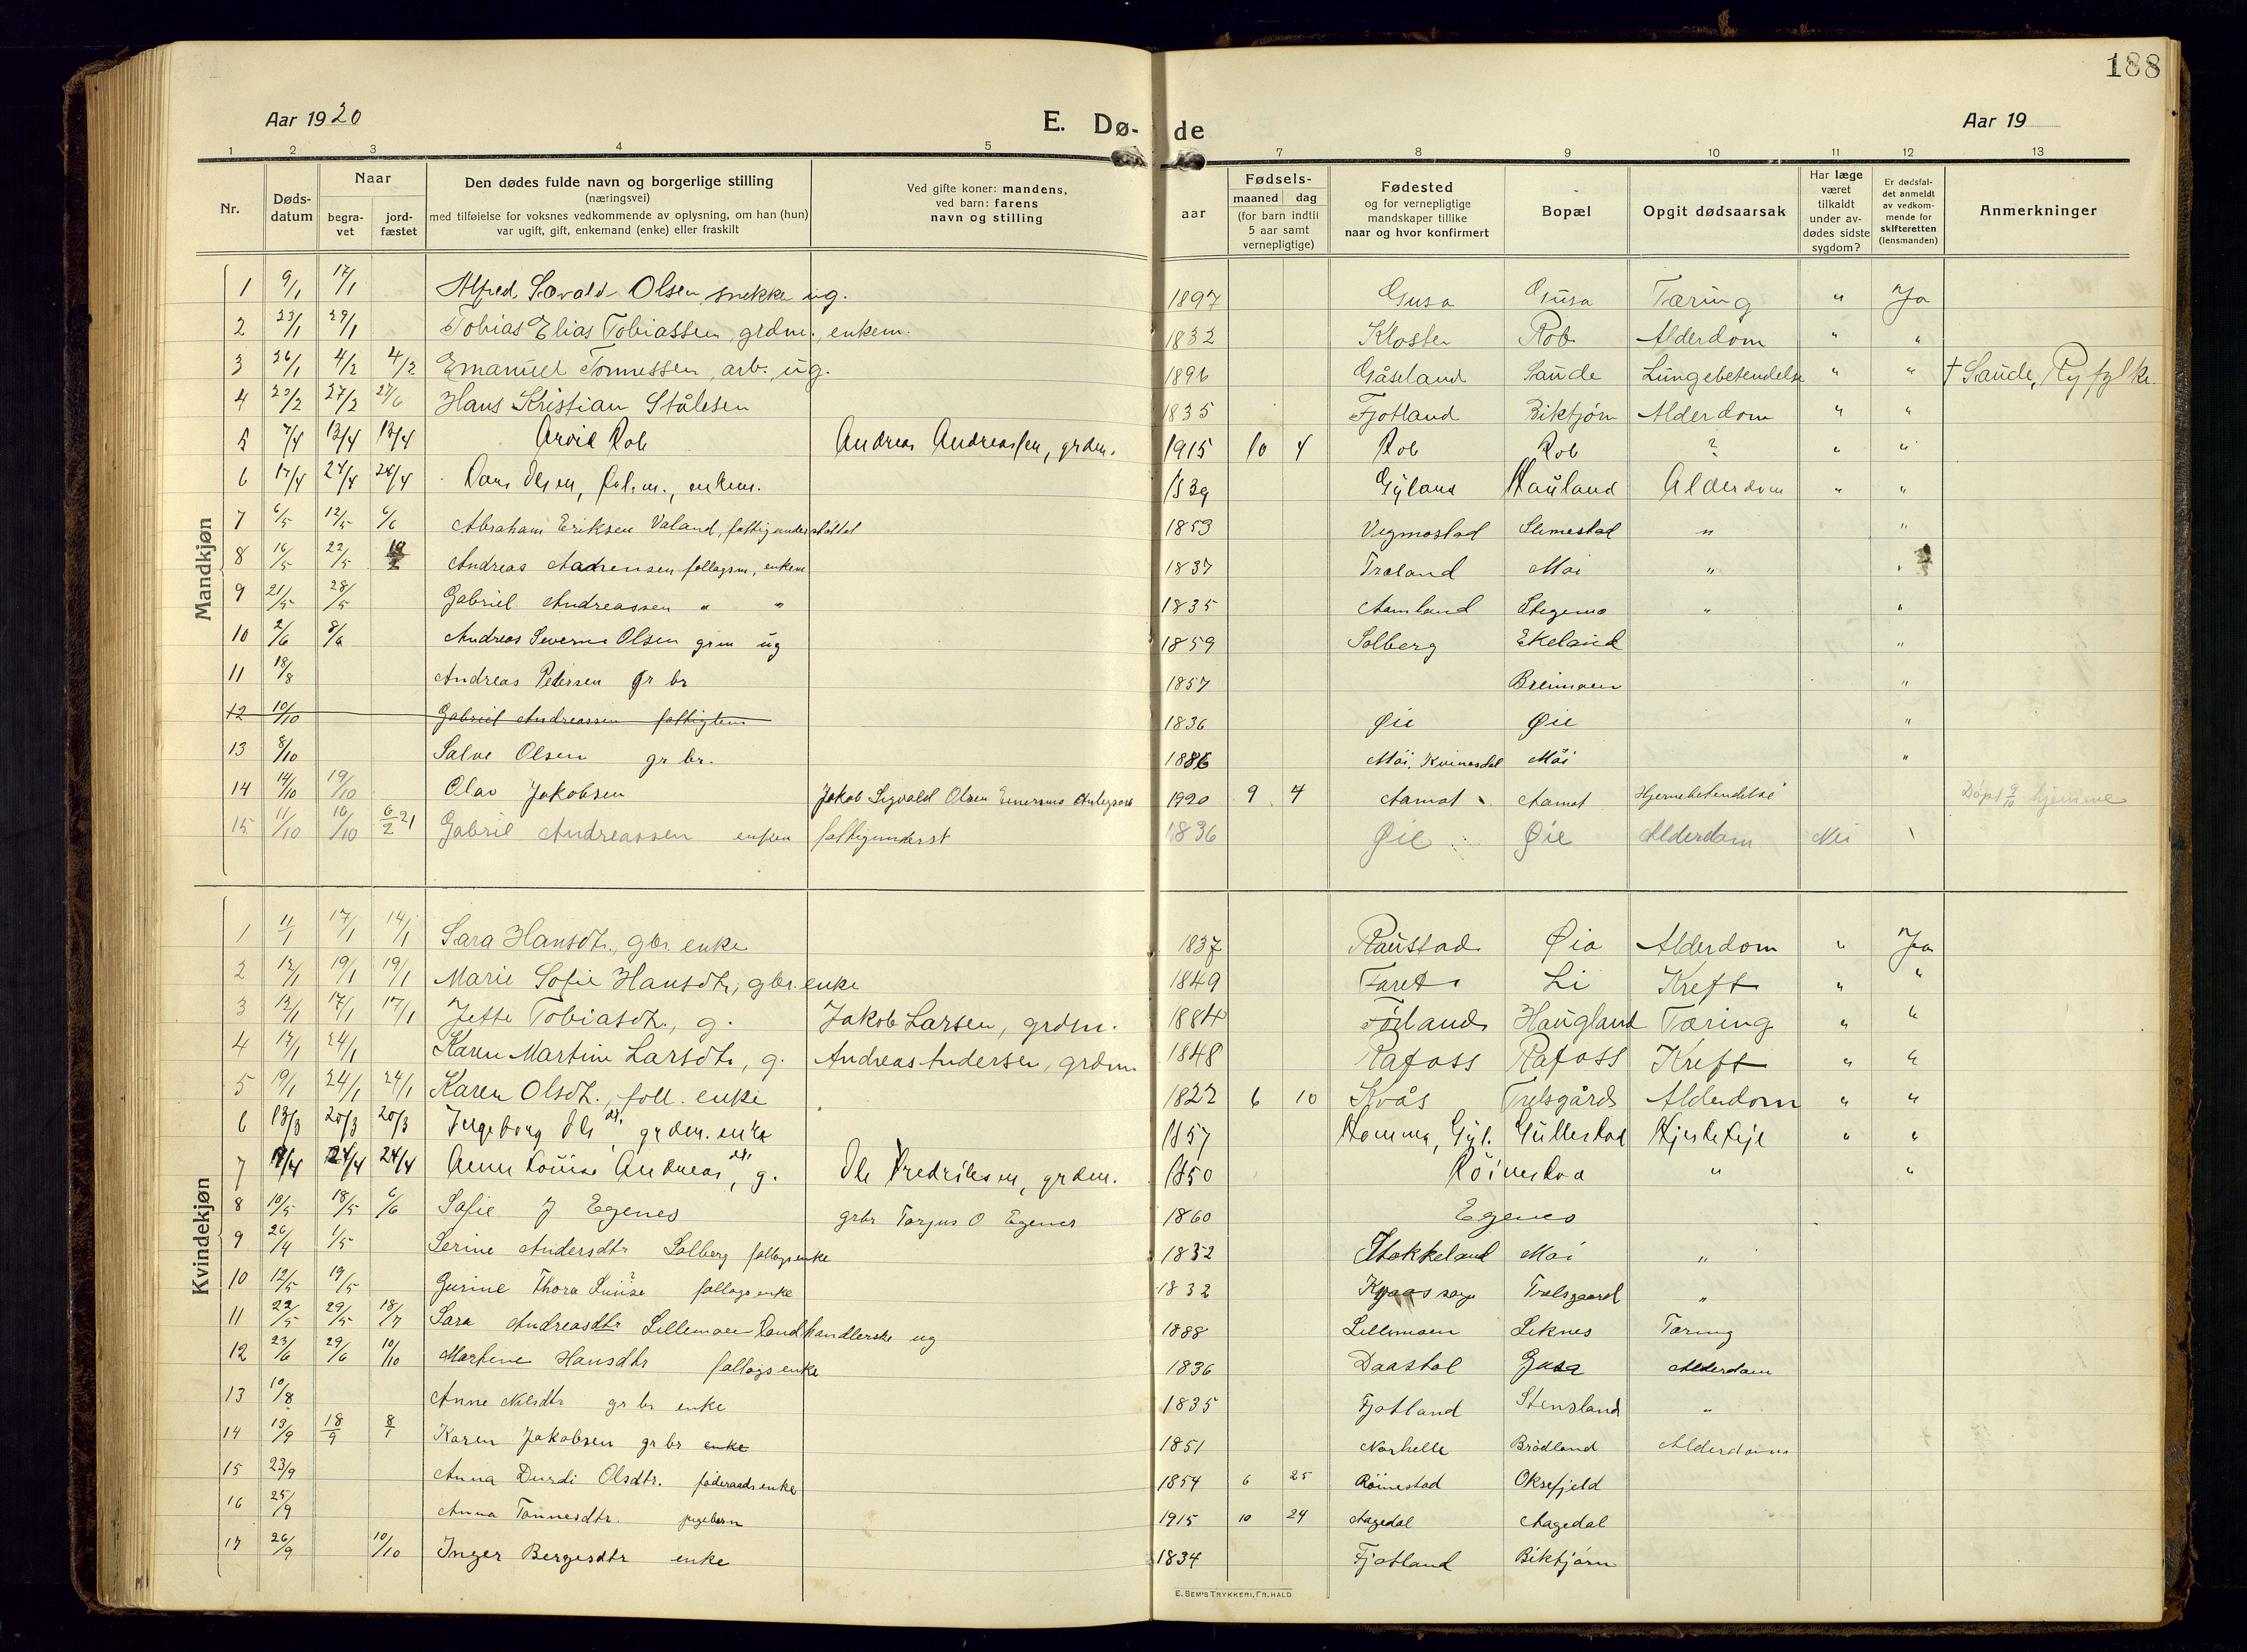 188
Aar 1920 E. Dø- de Aar 19
1 2 3 4 5 7 8 9 10 11 12 13
Nr. Dødsdatum Naar begravet jordfæstet Den dødes fulde navn og borgerlige stilling (næringsvei) med tilføielse for voksnes vedkommende av oplysning, om han (hun) var ugift, gift, enkemand (enke) eller fraskilt Ved gifte koner: mandens, ved barn: farens navn og stilling aar Fødsels- maaned dag (for barn indtil 5 aar samt vernepligtige) Fødested og for vernepligtige mandskaper tillike naar og hvor konfirmert Bopæl Opgit dødsaarsak Har læge været tilkaldt under avdødes sidste sygdom? Er dødsfaldet anmeldt av vedkommende for skifteretten (lensmanden) Anmerkninger
Mandkjøn
1 9/1 17/1 Alfred Sevald Olsen, snekker ug. 1897 Gusa Gusa Tæring " Ja
2 23/1 29/1 Tobias Elias Tobiassen, grdm., enkem. 1832 Kloster Rob Alderdom " "
3 26/1 4/2 4/2 Emanuel Tønnessen, arb., ug. 1896 Gåseland Saude Lungebetendelse " " † Saude, Ryfylke.
4 23/2 27/2 27/6 Hans Kristian Stålesen 1835 Fjotland Biktjørn Alderdom " "
5 7/4 13/4 13/4 Arvid Rob Andreas Andreassen, grdm. 1915 10 4 Rob Rob ? " "
6 17/4 24/4 24/4 Lars Olsen, enkem. 1839 Gyland Hauland Alderdom " "
7 6/5 12/5 6/6 Abraham Eriksen Valand, fattigunderstøttet 1853 Vegmostad Slimestad " "
8 16/5 22/5 Andreas Aadnensen follagsm, enkem 1837 Træland Moi " "
9 21/5 28/5 Gabriel Andreassen " " 1835 Aamland Stegemo " "
10 2/6 8/6 Andreas Severin Olsen grm ug 1859 Solberg Ekeland "
11 18/8 Andreas Pedersen gr br 1857 Breimoen "
12 10/10 Gabriel Andreassen fattiglem 1836 Øie Øie "
13 8/10 Salve Olsen gr br. 1886 Moi, Kvinesdal Moi "
14 14/10 19/10 Olav Jakobsen Jakob Sigvald Olsen Anlegsarb 1920 9 4 Aamot Aamot Hjernebetendelse Døpt 9/10 hjemme
15 11/10 16/10 6/2 21 Gabriel Andreassen enkem fattigunderst 1836 Øie Øie Alderdom Nei
Kvindekjøn
1 11/1 17/1 14/1 Sara Hansdtr., gbr. enke 1837 Raustad Øie Alderdom " Ja
2 12/1 19/1 19/1 Marie Sofie Hansdtr, gbr. enke 1849 Faret Li Kreft " "
3 12/1 17/1 17/1 Jette Tobiasdtr., g. Jakob Larsen, grdm. 1884 Førland Haugland Tæring " "
4 17/1 24/1 Karen Martine Larsdtr, g. Andreas Andersen, grdm. 1848 Rafoss Rafoss Kreft " "
5 19/1 24/1 24/1 Karen Olsdtr., foll. enke 1822 6 10 Kvås Trelsgård Alderdom " "
6 13/3 20/3 20/3 Ingeborg Olsdtr, grdm. enke 1857 Homme, Gyl. Gullestad Hjertefeil " "
7 17/4 24/4 24/4 Anne Louise Andreasdtr, g. Ole Fredriksen, grdm. 1850 Röinestad " "
8 10/5 18/5 6/6 Sofie J Egenes grbr Torjus O Egenes 1860 Egenes
9 26/4 1/5 Serine Andersdtr Solberg follagsenke 1832 Stokkeland Moi "
10 12/5 19/5 Gurine Thora Luise follagsenke 1832 Kvaas sogn Trælsgaard "
11 22/5 29/5 18/7 Sara Andreasdtr Lillemoen Landhandlerske ug 1888 Lillemoen Liknes Tæring
12 23/6 29/6 10/10 Martine Hansdtr follagsenke 1836 Daastøl Gusa Alderdom
13 10/8 Anne Nilsdtr gr br enke 1835 Fjotland Stensland "
14 13/9 18/9 8/1 Karen Jakobsen gr br enke 1851 Narhelle Brødland Alderdoms
15 23/9 Anna Durdi Olsdtr. føderaadsenke 1854 6 25 Röinestad Oksefjeld
16 25/9 Anna Tønnesdtr. pigebarn 1915 10 24 Aagedal Aagedal
17 26/9 10/10 Inger Bergesdtr enke 1834 Fjotland Biktjørn
E. SEM'S TRYKKERI, FR. HALD